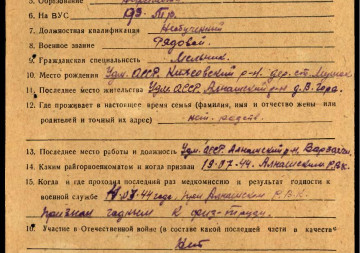 5. Образование
6. На ВУС 93-
7. Должностная квалификация Необученный
8. Военное звание Рядовой.
9. Гражданская специальность Мельник.
10. Место рождения Удм. АССР. р-н. дер. ст.
11. Последнее место жительства Удм. АССР. Алнашский р-н д. В. Гора.
12. Где проживает в настоящее время семья (фамилия, имя и отчество жены или
родителей и точный их адрес) нет
13. Последнее место работы и должность Удм. АССР. Алнашский р-н
14. Каким райгорвоенкоматом и когда призван 19-07-44. Алнашским Р.В.К.
15. Когда и где проходил последний раз медкомиссию и результат годности к
военной службе 07.44 года, при Алнашском Р.В.К.
признан годным к физ-труду.
16. Участие в Отечественной войне (в составе какой последней части в качестве
Нет